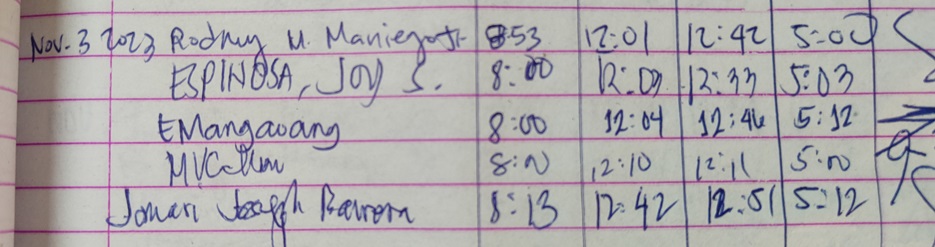 Nov. 3 2023 Rodney M. Maniego Jr. 8:53 12:01 12:42 5:00
ESPINOSA, JOY S. 8:00 12:09 12:33 5:03
EMangaoang 8:00 12:04 12:46 5:12
8:00 12:10 12:11 5:00
Jomari Joseph Barrera 8:13 12:42 12:51 5:12